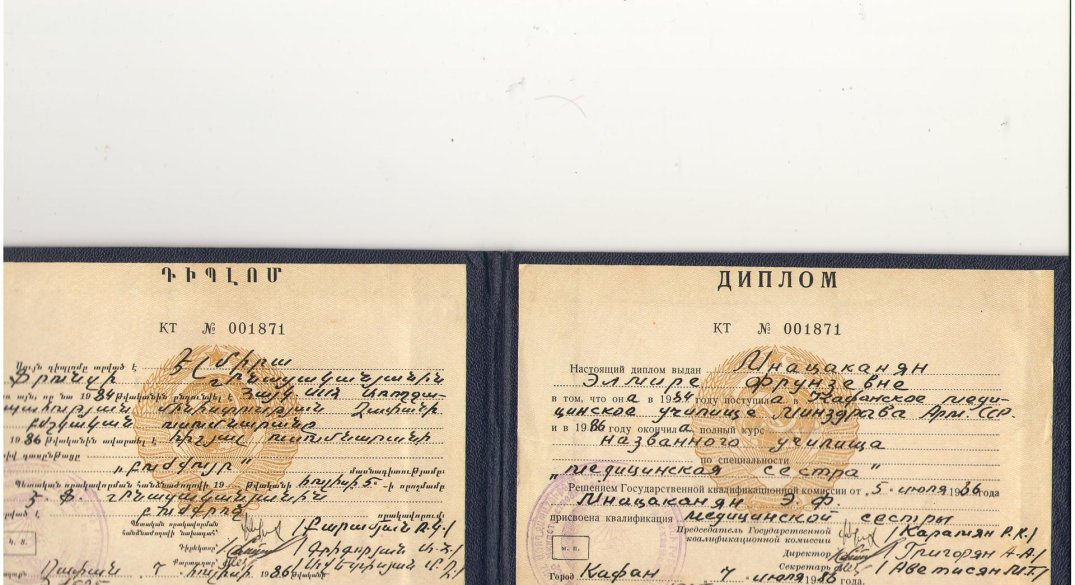 ԴԻՊԼՈՄ
КТ № 001871
Սույն դիպլոմը տրված է Էլմիրա
Ֆրունզիկի Մնացականյանին
այն, որ նա 1984 թվականին ընդունվել է Հայկ. ՍՍՀ
միևիստրության Ղափանի
բժշկական ուսումնարանը
1986 թվականին ավարտել է հիշյալ ուսումնարանի
դասընթացը
„բուժքույր“
մասնագիտությամբ:
Պետական որակավորման հանձնաժողովի 19 թվականի հուլիսի 5-ի որոշմամբ
Է. Ֆ. Մնացականյանին
տրված է բուժքրոջ
որակավորում:
Պետական որակավորման
հանձնաժողովի նախագահ՝ /Քարամյան Ռ.Կ./
Դիրեկտոր՝ /Գրիգորյան Ա.Հ./
Քարտուղար՝ /Ավետիսյան Մ.Տ./
Կ. Տ.
Ղափան 7 հուլիսի 1986 թվական
ДИПЛОМ
КТ № 001871
Настоящий диплом выдан Мнацаканян
Эльмире Фрунзевне
в том, что она в 1984 году поступила в Кафанское меди-
цинское училище Минздрава Арм. ССР
и в 1986 году окончила полный курс
названного училища
по специальности
„медицинская сестра“
Решением Государственной квалификационной комиссии от „5“ июля 1986 года
Мнацаканян Э. Ф.
присвоена квалификация медицинской сестры
Председатель Государственной
квалификационной комиссии /Карамян Р.К./
Директор /Григорян А.А./
Секретарь /Аветисян М.Т./
м. п.
Город Кафан 7 июля 1986 года.